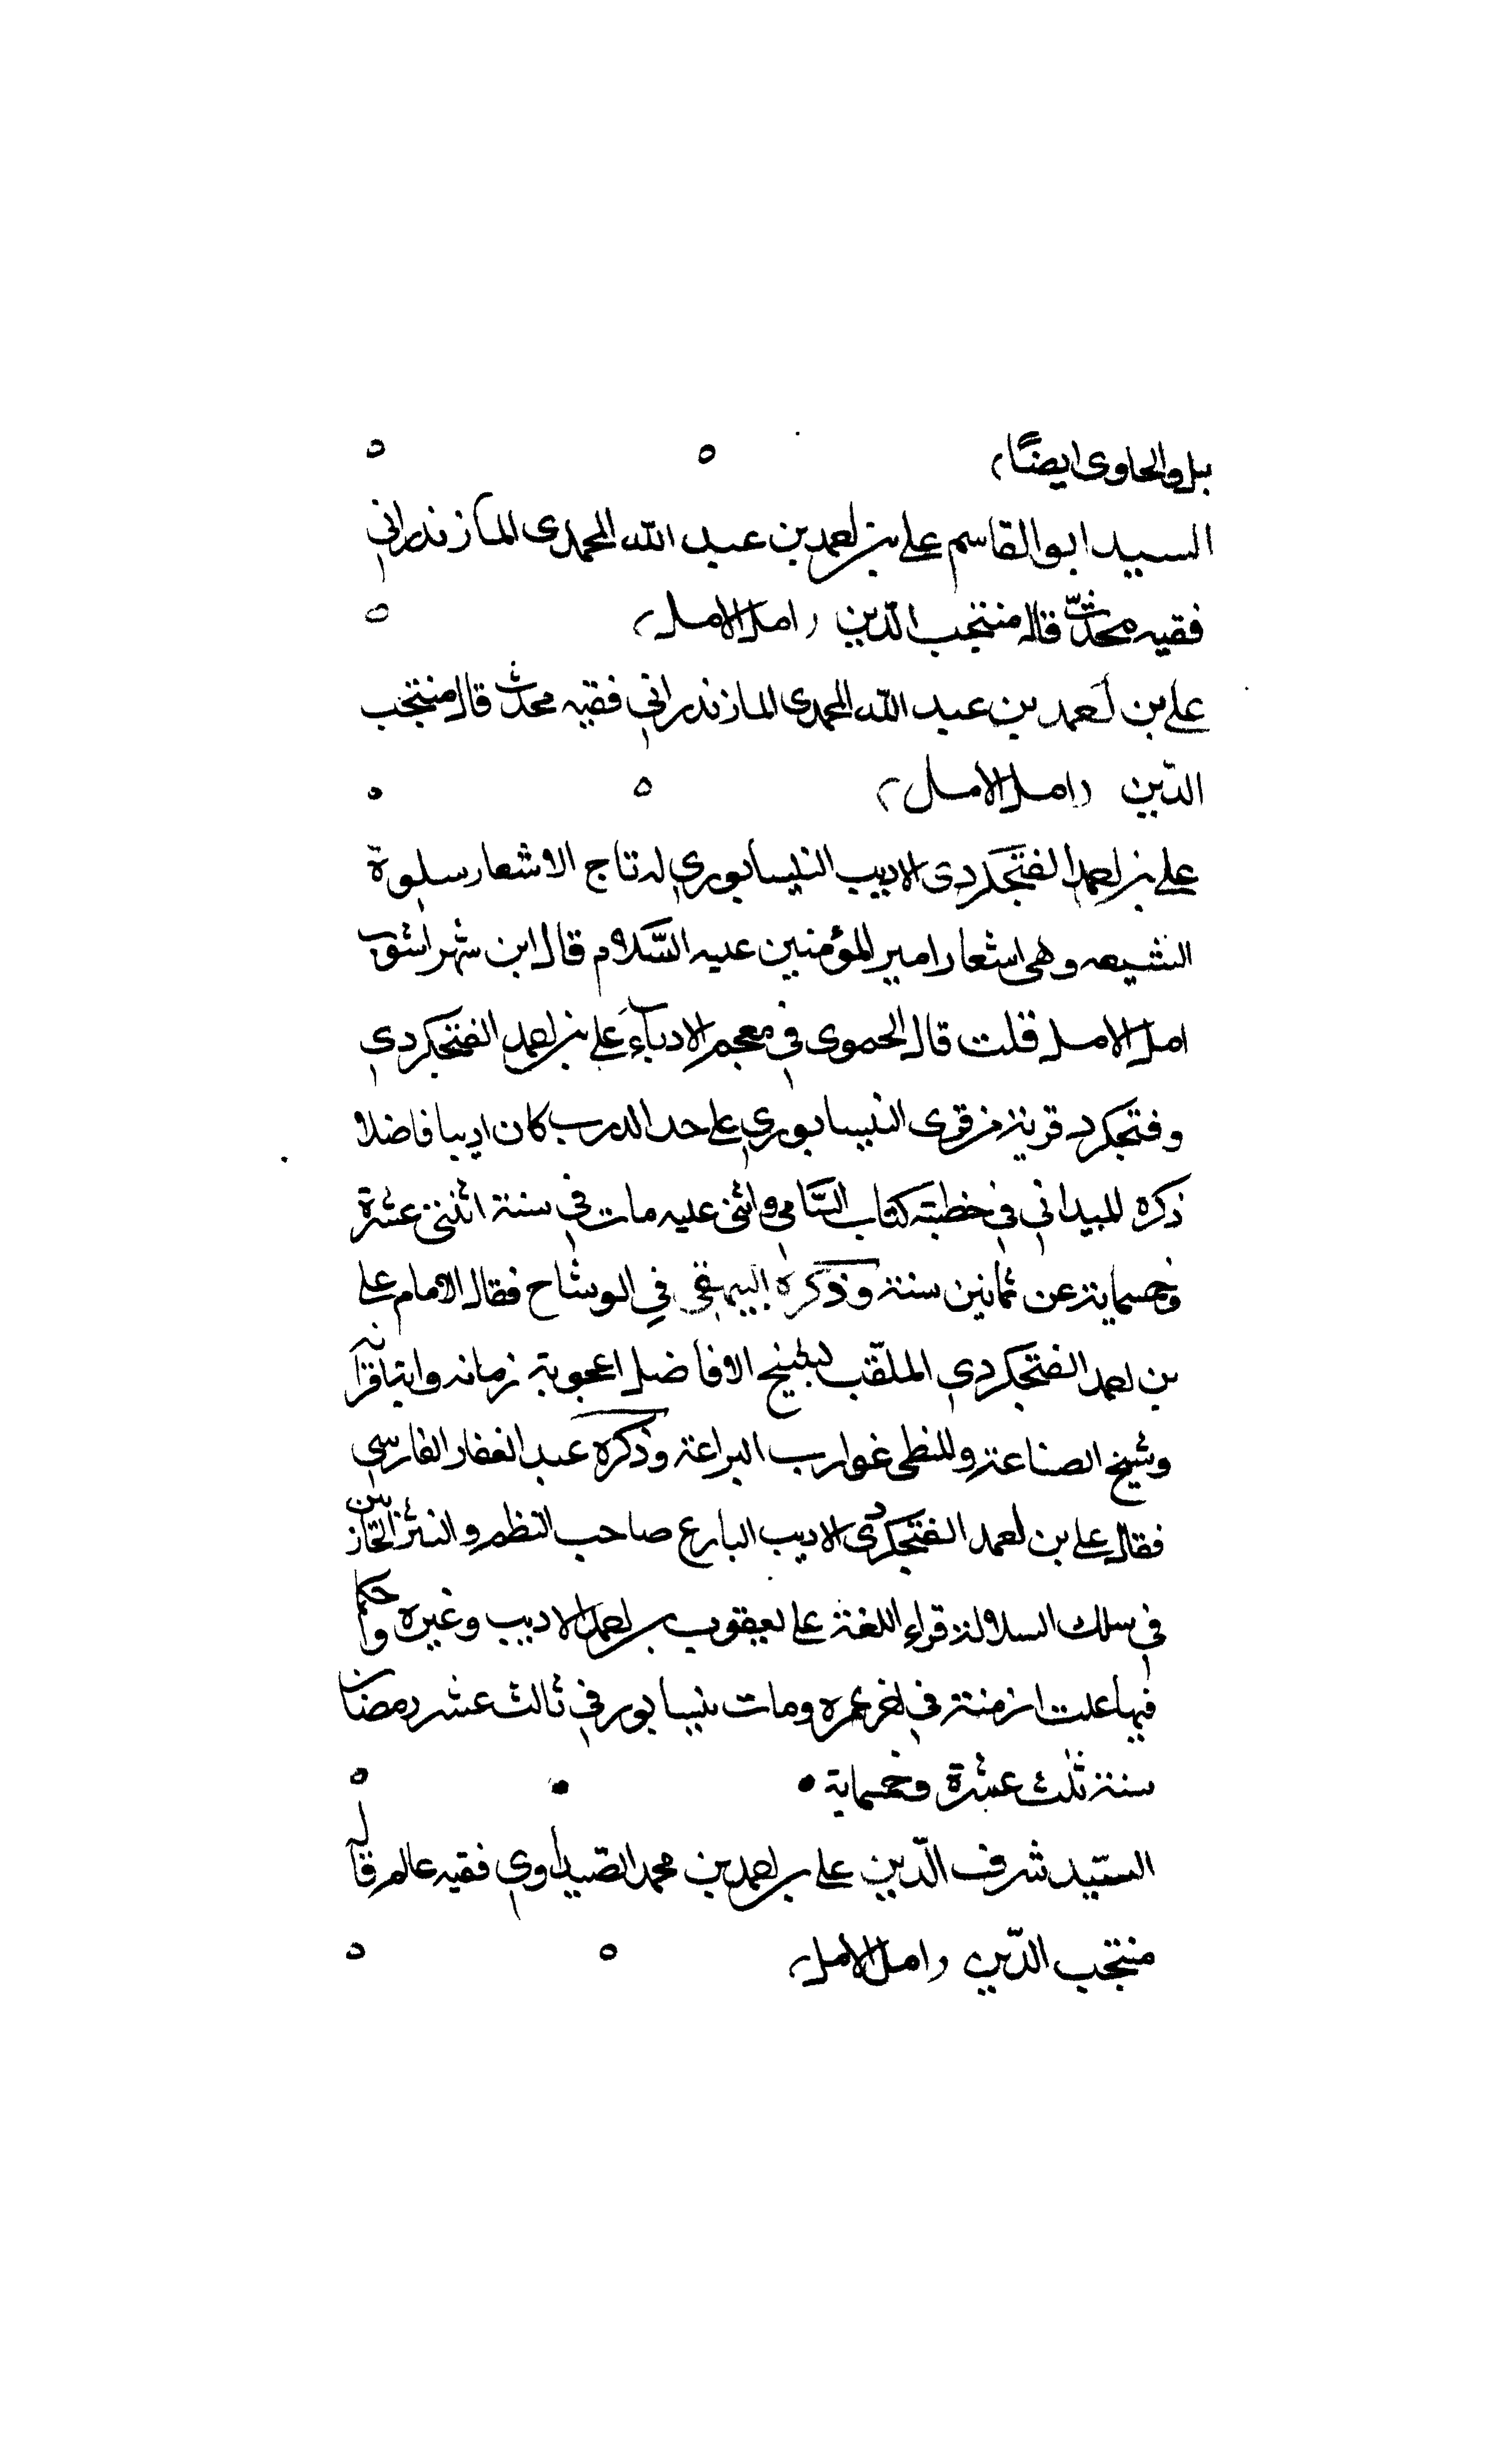 بل والحاوى ايضًا
السيد ابو القاسم على بن احمد بن عبد الله المحمدى المازندراني
فقيه محدّث قاله منتجب الدّين (امل الامل)
على بن احمد بن عبد الله المحمدى المازندراني فقيه محدث قاله منتجب
الدّين (امل الامل)
على بن احمد الفتجكردى الاديب النيسابوري له تاج الاشعار سلوة
الشيعه وهى اشعار امير المؤمنين عليه السّلام قاله ابن شهر اشوب
امل الامل قلت قال الحموى في معجم الادباء على بن احمد الفتجكردي
وفتجكرد قرية من قرى النيسابوري على حد الدرب كان اديبا فاضلا
ذكره الميداني في خطبة كتاب السّامي واثنى عليه مات في سنة اثنتى عشرة
وخمسماية عن ثمانين سنة وذكره البيهقي في الوشاح فقال الامام على
بن احمد الفتجكردي الملقّب بشيخ الافاضل اعجوبة زمانه واية اقرانه
وشيخ الصناعة والممتطى غوارب البراعة وذكره عبد الغفار الفارسي
فقال على بن احمد الفتجكردى الاديب البارع صاحب النظم والنثر الجاريين
في سلك السلالة قراء اللغة على يعقوب بن احمد الاديب وغيره واحكم
فيها علت ازمنة في اخر عمره ومات بنيسابور في ثالث عشر رمضان
سنة ثلث عشرة وخمسماية
السيّد شرف الدّين على بن احمد بن محمد الصّيداوي فقيه عالم قاله
منتجب الدّين (امل الامل)